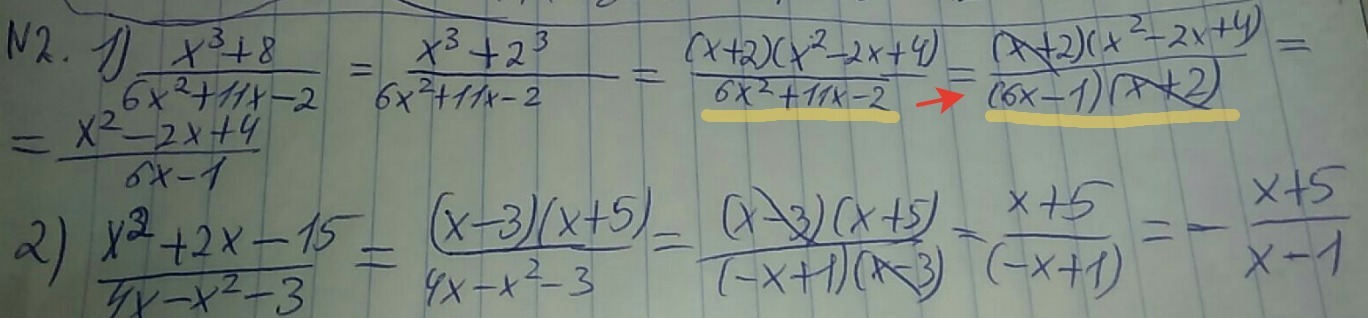 N2. 1) \frac{x^3+8}{6x^2+11x-2} = \frac{x^3+2^3}{6x^2+11x-2} = \frac{(x+2)(x^2-2x+4)}{6x^2+11x-2} = \frac{(x+2)(x^2-2x+4)}{(6x-1)(x+2)} =
= \frac{x^2-2x+4}{6x-1}
2) \frac{x^2+2x-15}{4x-x^2-3} = \frac{(x-3)(x+5)}{4x-x^2-3} = \frac{(x-3)(x+5)}{(-x+1)(x-3)} = \frac{x+5}{(-x+1)} = -\frac{x+5}{x-1}